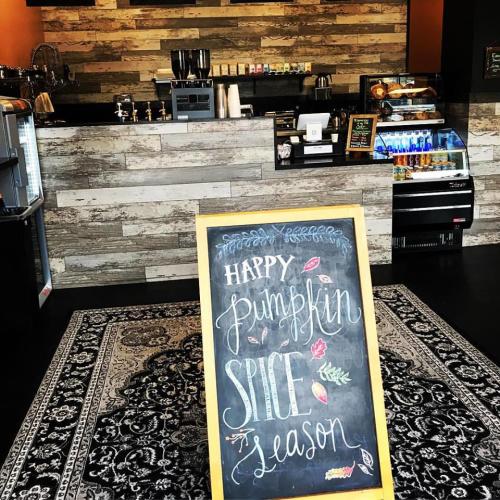 HAPPY
pumpkin
SPICE
season